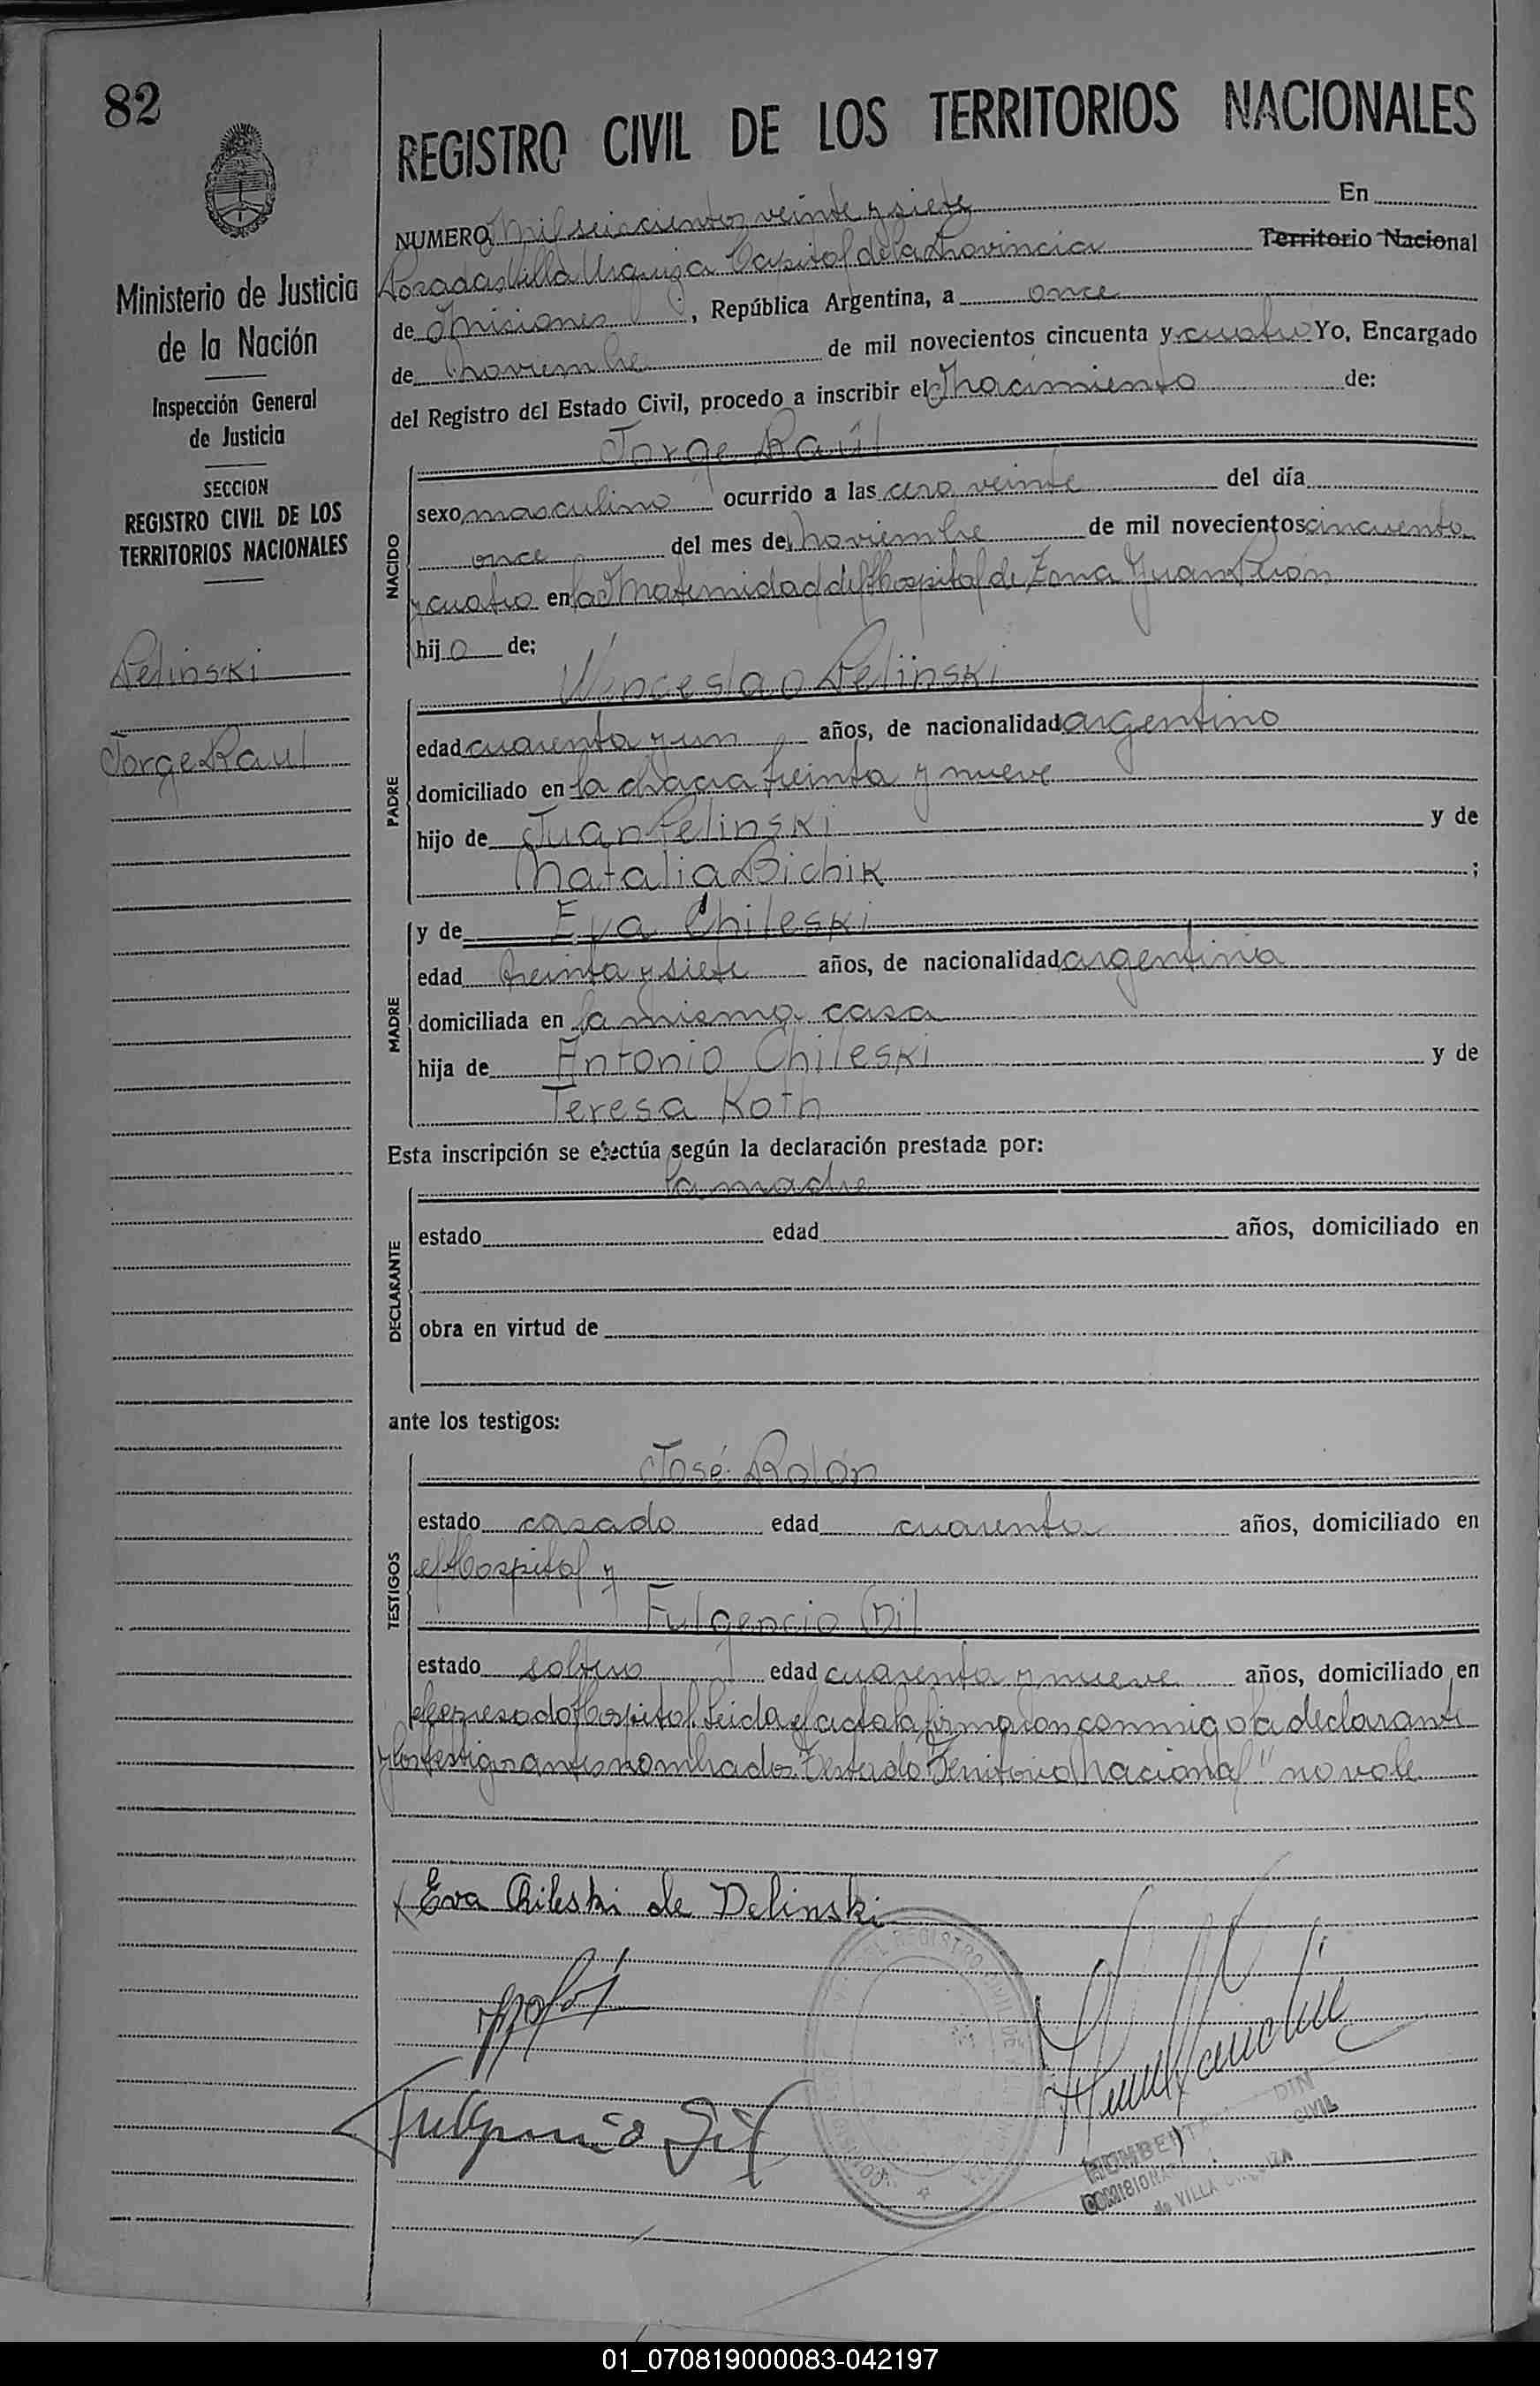 82
REGISTRO CIVIL DE LOS TERRITORIOS NACIONALES
Ministerio de Justicia
de la Nación
Inspección General
de Justicia
SECCION
REGISTRO CIVIL DE LOS
TERRITORIOS NACIONALES
Pelinski
Jorge Raul
NUMERO Mil seiscientos veinte y siete En
Posadas Villa Urquiza Capital de la Provincia Territorio Nacional
de Misiones, República Argentina, a once
de noviembre de mil novecientos cincuenta y cuatro Yo, Encargado
del Registro del Estado Civil, procedo a inscribir el Nacimiento de:
Jorge Raúl
NACIDO
sexo masculino ocurrido a las cero veinte del día
once del mes de noviembre de mil novecientos cincuenta
y cuatro en la Maternidad del Hospital de Zona Juan Perón
hijo de;
Wenceslao Pelinski
PADRE
edad cuarenta y un años, de nacionalidad argentino
domiciliado en la chacra treinta y nueve
hijo de Juan Pelinski y de
Natalia Bichik ;
y de Eva Chileski
MADRE
edad treinta y siete años, de nacionalidad argentina
domiciliada en la misma casa
hija de Antonio Chileski y de
Teresa Koth
Esta inscripción se efectúa según la declaración prestada por:
la madre
DECLARANTE
estado edad años, domiciliado en
obra en virtud de
ante los testigos:
José Rolón
TESTIGOS
estado casado edad cuarenta años, domiciliado en
el Hospital y
Fulgencio Gil
estado soltero edad cuarenta y nueve años, domiciliado en
el expresado Hospital. Leida el acta la firmaron conmigo la declarante
y los testigos antes nombrados. Testado "Territorio Nacional" no vale
Eva Chileski de Pelinski
Fulgencio Gil
REGISTRO CIVIL DE
COMISIONA
de VILLA URQUIZA
CIVIL
01_070819000083-042197